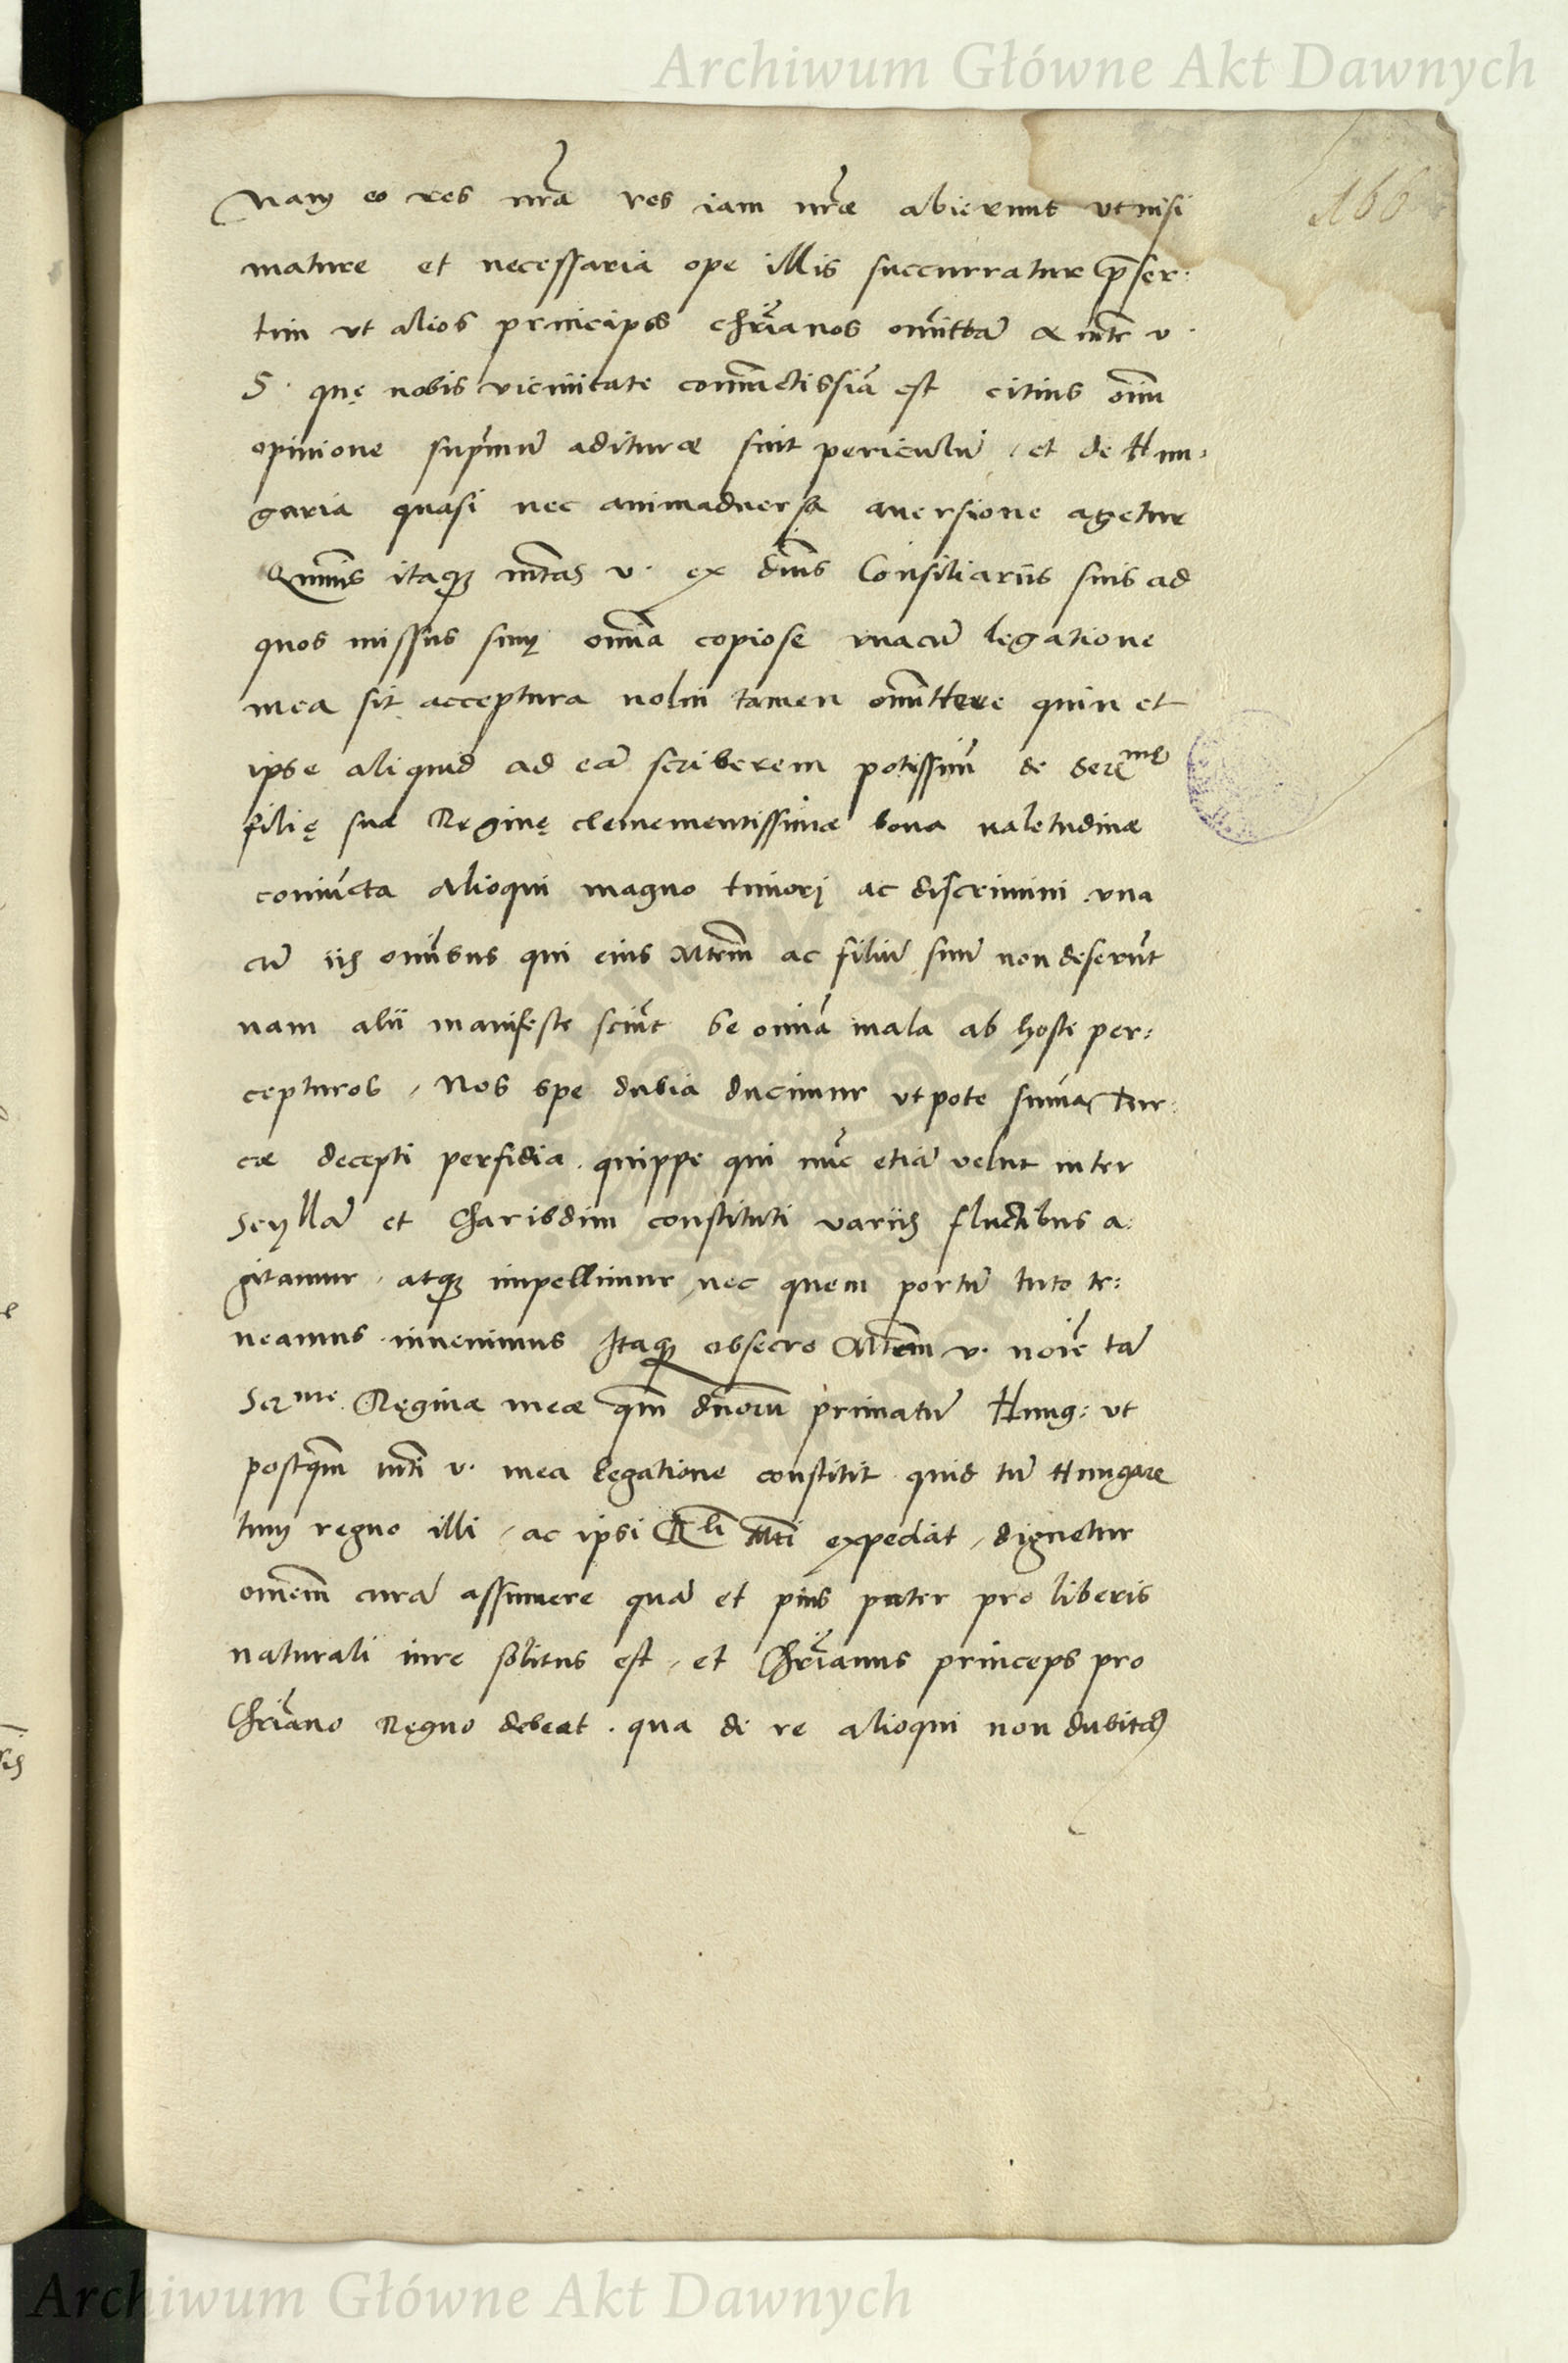 Archiwum Główne Akt Dawnych
166
Nam eo res nrã res iam nrãe abierunt ut nisi
mature et necessaria ope illis succurratur p̃ser:
tim vt alios principes chrĩanos omittã a mte v.
S. quę nobis vicinitate coniunctissiã est citius oim̃
opinione supr̃mũ aditurae sint periculũ, et de Hun:
garia quasi nec animaduersa auersione agetur
Quãuis itaq; mtas v. ex dnis Consiliariis suis ad
quos missus sum omnia copiose vnacũ legatione
mea sit acceptura nolui tamen omittere quin et
ipse aliquid ad eã scriberem potissimũ de Serme
filię suae Reginę clemementissimae bona ualetudinae
coniũcta Alioqui magno timori ac discrimini vna
cũ iis omĩbus qui eius Mtem ac filiũ suũ non deserũt
nam alii manifeste sciũt se omnia mala ab hoste per:
cepturos, Nos spe dubia ducimur utpote suma Tur:
cae decepti perfidia. quippe qui nũc etiã velut inter
Scyllã et Charibdim constituti variis fluctibus a:
gitamur, atq; impellimur, nec quem portũ tuto te:
neamus inuenimus Itaq; obsecro Mtem v. noĩe tã
Serme Reginae meae qm̃ dnorũ primatũ Hung: ut
postqm̃ mti v. mea legatione constitit quid tũ Hungare
tum regno illi, ac ipsi Rli Mti expediat, dignetur
omnem curã assumere quã et pius pater pro liberis
naturali iure solitus est, et Chrĩanus princeps pro
Chrĩano Regno debeat. qua de re alioqui non dubitã
Archiwum Główne Akt Dawnych